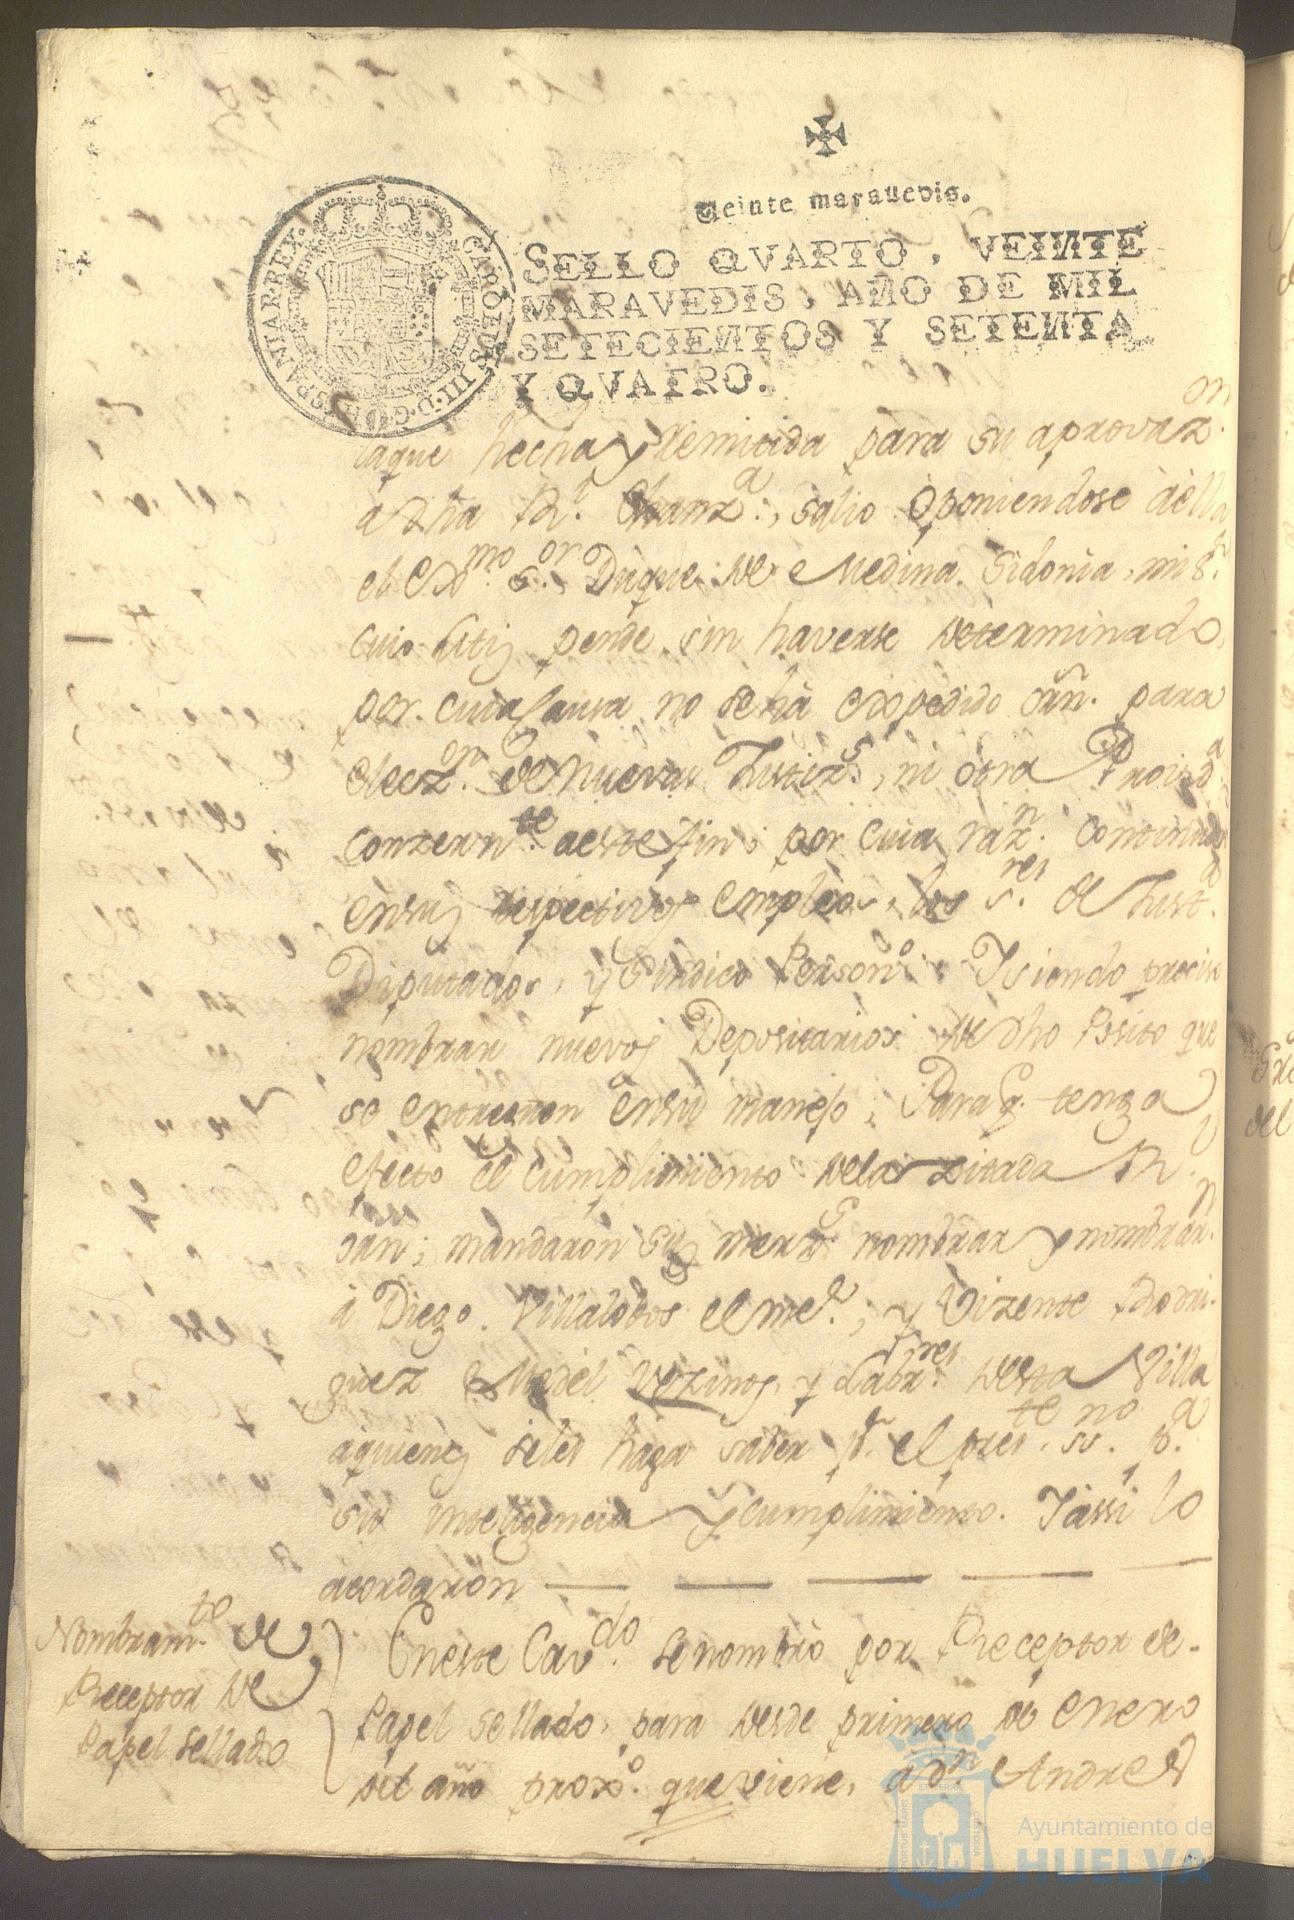 Veinte maravedis.
SELLO QVARTO, VEINTE
MARAVEDIS, AÑO DE MIL
SETECIENTOS Y SETENTA
Y QVATRO.
CAROLUS III D G HISPANIAR REX
laque hecha y Remitida para su aprovaz.on
a dha Rl. Chanz.a, salio oponiendose àella
el Exmo. s.or Duque de Medina Sidonia, mi s.r
cuio litis pende sin haverse determinado,
por cuia causa no se hà expedido orñ. para
elecz.on de nuevas Justiz.s, ni otra Provid.a
conzern.te aeste fin; por cuia raz.n continuan
ensus respectivos empleos, los s.res de Just.a
Diputados, y Sindico Person.o: Y siendo preciso
nombrar nuevos Depositarios de dho Posito que
se entreguen ensu manejo; Para q. tenga
efecto el cumplimiento dela zitada Rl.
orñ; mandaron sus merz.s nombrar y nombrar.n
à Diego Villalobos el me.r, y Vizente Rodri-
guez Medel Vezinos, y Labr.res desta Villa
aquienes seles haga saber p.r el pres.te ss.no p.a
su inteligencia y cumplimiento. Y assi lo
acordaron
Nombram.to de
Receptor de
Papel sellado
Eneste Cav.do se nombrò por Receptor de
Papel sellado, para desde primero de Enero
del año prox.o que viene, a d.n Andres
Ayuntamiento de
HUELVA